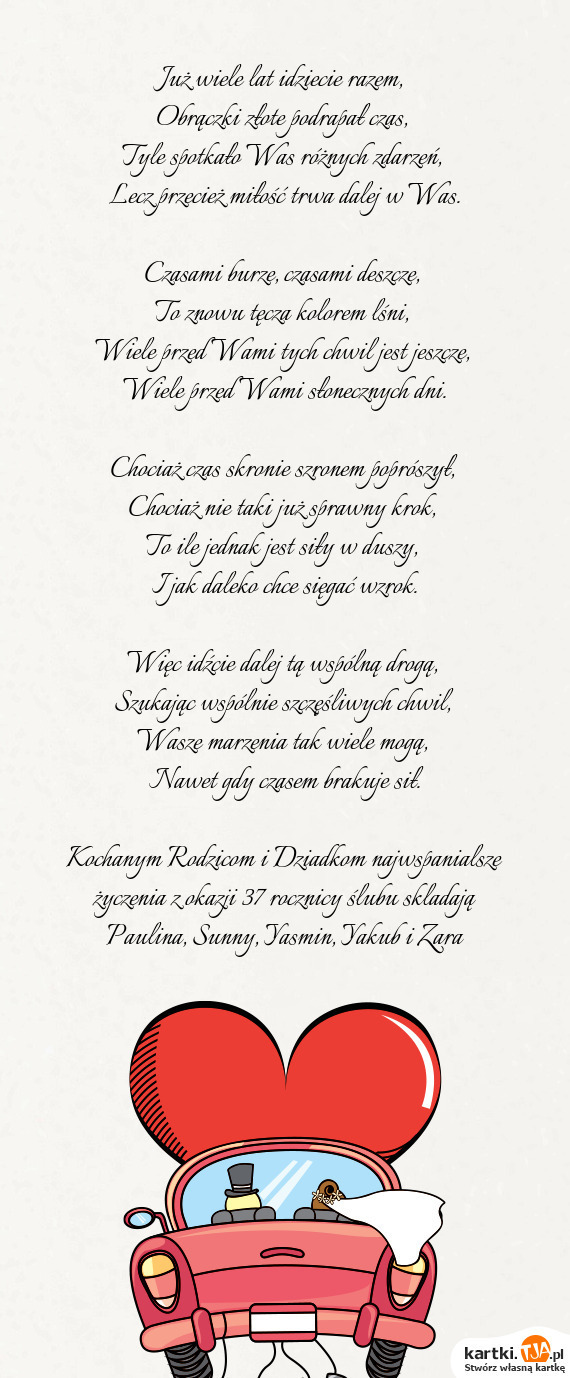 Już wiele lat idziecie razem,
Obrączki złote podrapał czas,
Tyle spotkało Was różnych zdarzeń,
Lecz przecież miłość trwa dalej w Was.
Czasami burze, czasami deszcze,
To znowu tęcza kolorem lśni,
Wiele przed Wami tych chwil jest jeszcze,
Wiele przed Wami słonecznych dni.
Chociaż czas skronie szronem poprószył,
Chociaż nie taki już sprawny krok,
To ile jednak jest siły w duszy,
I jak daleko chce sięgać wzrok.
Więc idźcie dalej tą wspólną drogą,
Szukając wspólnie szczęśliwych chwil,
Wasze marzenia tak wiele mogą,
Nawet gdy czasem brakuje sił.
Kochanym Rodzicom i Dziadkom najwspanialsze
życzenia z okazji 37 rocznicy ślubu skladają
Paulina, Sunny, Yasmin, Yakub i Zara
kartki.TJA.pl
Stwórz własną kartkę